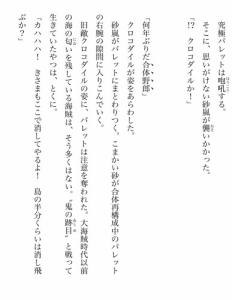 究極バレットは咆吼する。
そこに、思いがけない砂嵐が襲いかかった。
「!? クロコダイルか!」
「何年ぶりだ合体野郎」
クロコダイルが姿をあらわした。
砂嵐がバレットにまとわりつく。こまかい砂が合体再構成中のバレット
の右腕の隙間に入りこんでいく。
旧敵クロコダイルの姿に、バレットは注意を奪われた。大海賊時代以前
の海の匂いを残している海賊は、そう多くはない。〝鬼の跡目〟と戦って
生きていたやつは、とくに。
「カハハハ! きさまもここで消してやるよ! 島の半分くらいは消し飛
ぶか?」